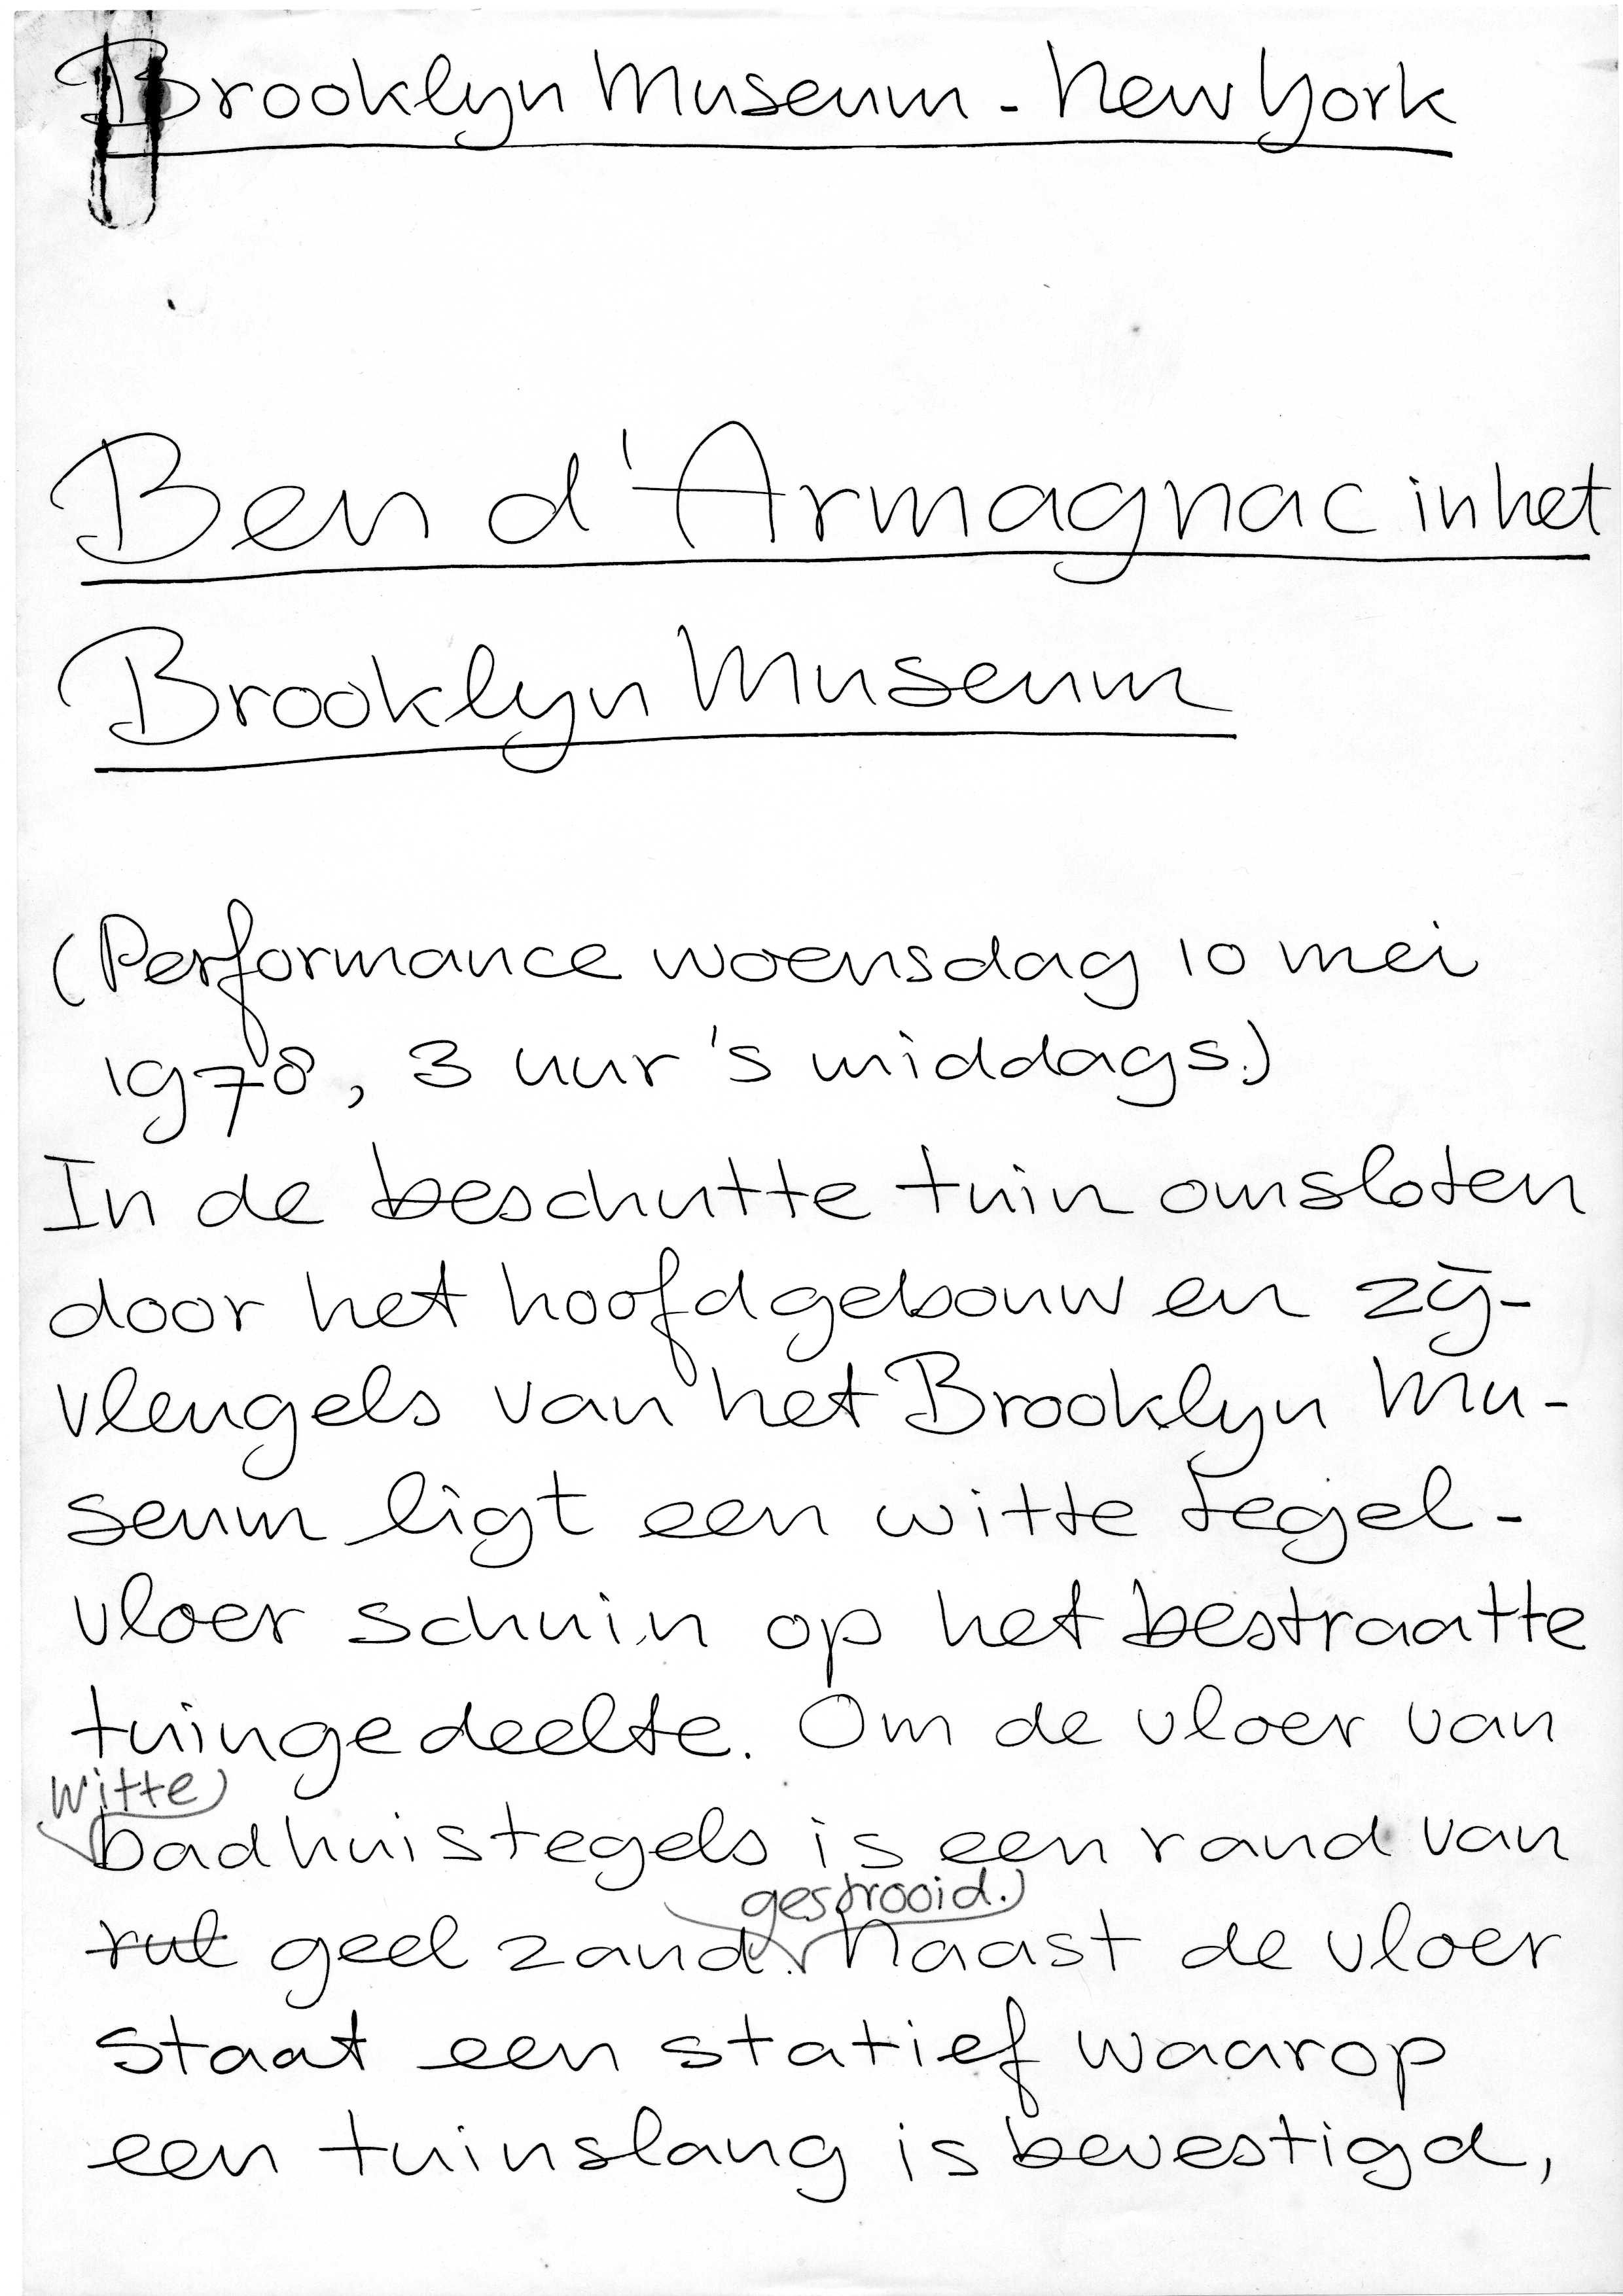 Brooklyn Museum - New York
Ben d'Armagnac in het
Brooklyn Museum
(Performance woensdag 10 mei
1978, 3 uur 's middags.)
In de beschutte tuin omsloten
door het hoofdgebouw en zij-
vleugels van het Brooklyn Mu-
seum ligt een witte tegel-
vloer schuin op het bestraatte
tuingedeelte. Om de vloer van
witte
badhuistegels is een rand van
gestrooid.
rul geel zand. Naast de vloer
staat een statief waarop
een tuinslang is bevestigd,